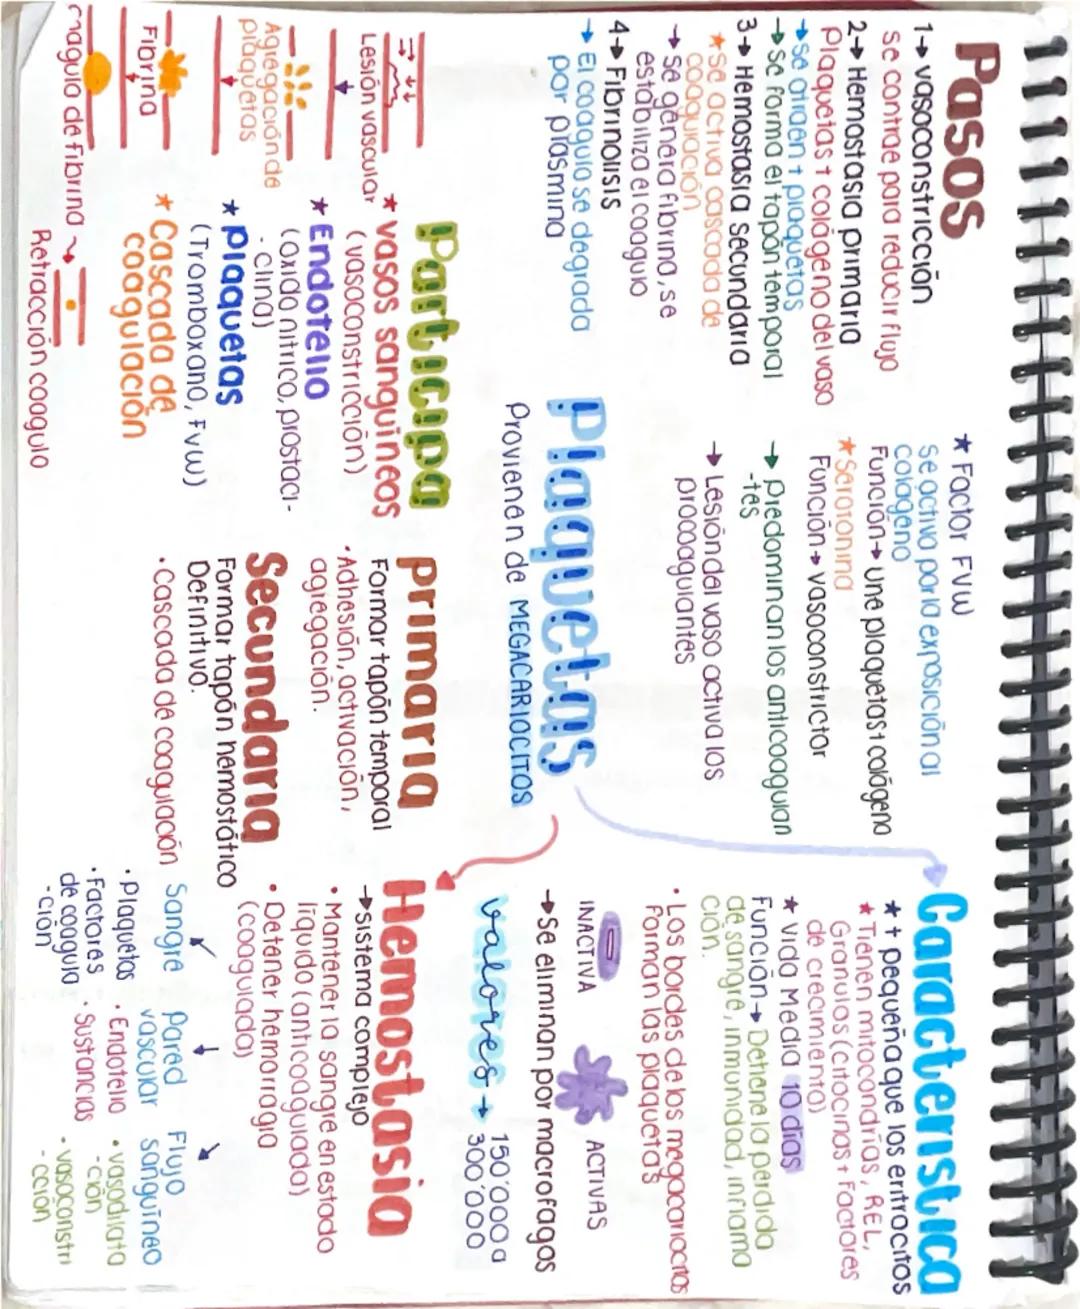 Pasos
1→ vasoconstricción
se contrae para reducir flujo
2→ Hemostasia primaria
Plaquetas + colágeno del vaso
→ se atraen + plaquetas
→ Se forma el tapón temporal
3→ Hemostasia Secundaria
★ Se activa cascada de
coaguración
→ Se genera fibrina, se
estabiliza el coagulo
4→ Fibrinolisis
→ El coagulo se degrada
por plasmina
★ Factor FVW
Se activa por la exposición al
colageno
Función → une plaquetas + colágeno
★ Serotonina
Función → vasoconstrictor
→ Predominan los anticoagulan
-tes
→ Lesión del vaso activa los
procoagulantes
Plaquetas
Provienen de MEGACARIOCITOS
Característica
★ + pequeña que los eritrocitos
★ Tienen mitocondrias, REL,
Granulos (citocinas + Factores
de crecimiento)
★ Vida Media 10 dias
Función → Detiene la perdida
de sangre, inmunidad, inflama
ción.
• Los bordes de los megacariocitos
Forman las plaquetas
INACTIVA
ACTIVAS
→ Se eliminan por macrofagos
valores →
150'000 a
300'000
Lesión vascular
Agregación de
plaquetas
Fibrina
magula de fibrina
Retracción coagulo
Participa
★ vasos sanguineos
(vasoconstricción)
★ Endotelio
(oxido nitrico, prostaci-
-clina)
★ plaquetas
(Tromboxano, FVW)
★ Cascada de
coagulación
primaria
Formar tapón temporal
• Adhesión, activación,
agregación.
Secundaria
Formar tapón hemostático
Definitivo.
• Cascada de coagulación
Hemostasia
→ sistema complejo
• Mantener la sangre en estado
líquido (anticoagulada)
• Detener hemorragia
(coagulada)
Sangre
• Plaquetas
• Factores
de coagula
-ción
Pared
vascular
• Endotelio
• Sustancias
Flujo
sanguíneo
• vasodilata
-ción
• vasoconstri
-cción